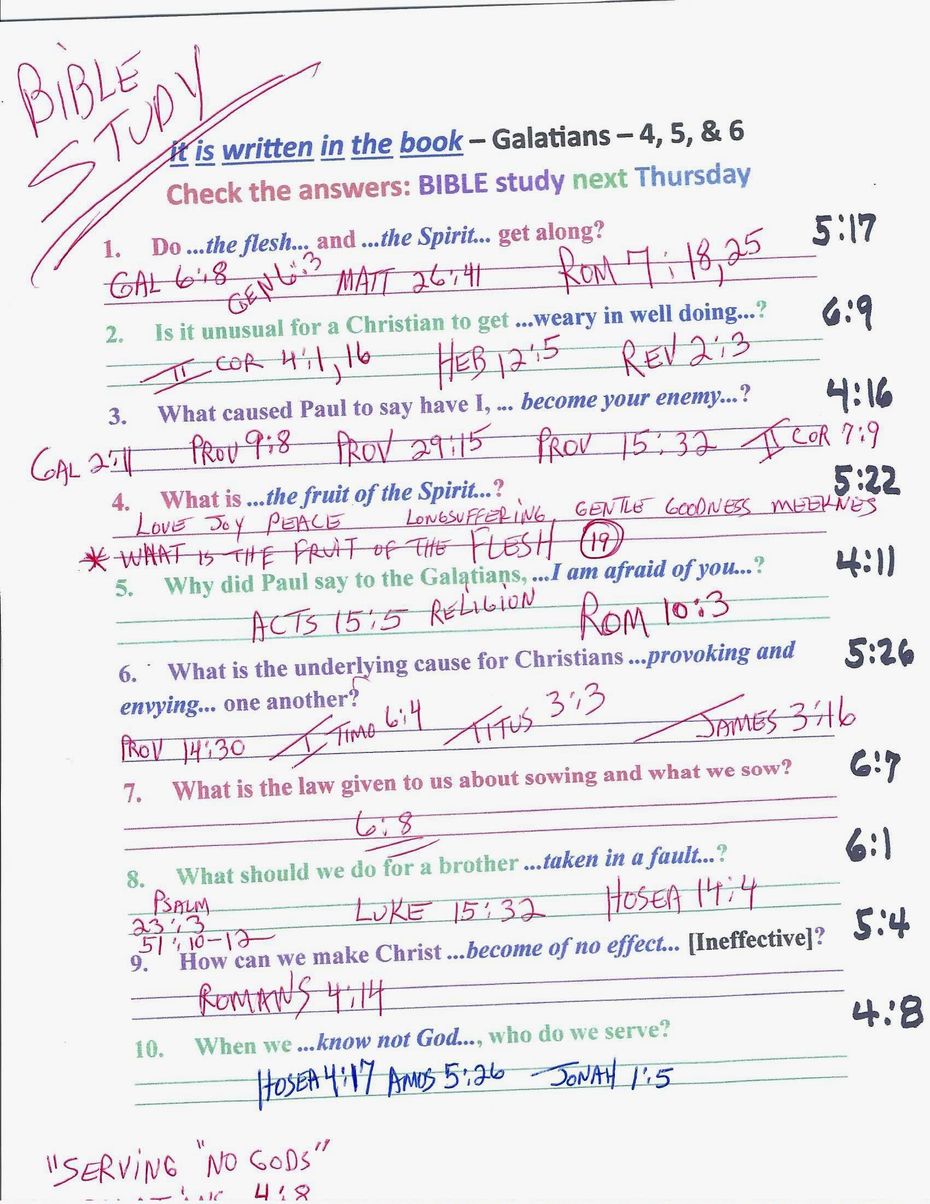 BIBLE
STUDY
it is written in the book – Galatians – 4, 5, & 6
Check the answers: BIBLE study next Thursday
1. Do ...the flesh... and ...the Spirit... get along? 5:17
GAL 6:8 GEN 6:3 MATT 26:41 ROM 7:18,25
2. Is it unusual for a Christian to get ...weary in well doing...? 6:9
II COR 4:1,16 HEB 12:5 REV 2:3
3. What caused Paul to say have I, ... become your enemy...? 4:16
GAL 2:11 PROV 9:8 PROV 29:15 PROV 15:32 II COR 7:9
4. What is ...the fruit of the Spirit...? 5:22
LOVE JOY PEACE LONGSUFFERING, GENTLE GOODNESS MEEKNES
* WHAT IS THE FRUIT OF THE FLESH 19
5. Why did Paul say to the Galatians, ...I am afraid of you...? 4:11
ACTS 15:5 RELIGION ROM 10:3
6. What is the underlying cause for Christians ...provoking and 5:26
envying... one another?
PROV 14:30 I TIMO 6:4 TITUS 3:3 JAMES 3:16
7. What is the law given to us about sowing and what we sow? 6:7
6:8
8. What should we do for a brother ...taken in a fault...? 6:1
PSALM
23:3 LUKE 15:32 HOSEA 14:4
51:10-12
9. How can we make Christ ...become of no effect... [Ineffective]? 5:4
ROMANS 4:14
10. When we ...know not God..., who do we serve? 4:8
HOSEA 4:17 AMOS 5:26 JONAH 1:5
"SERVING "NO GODS"
4:8